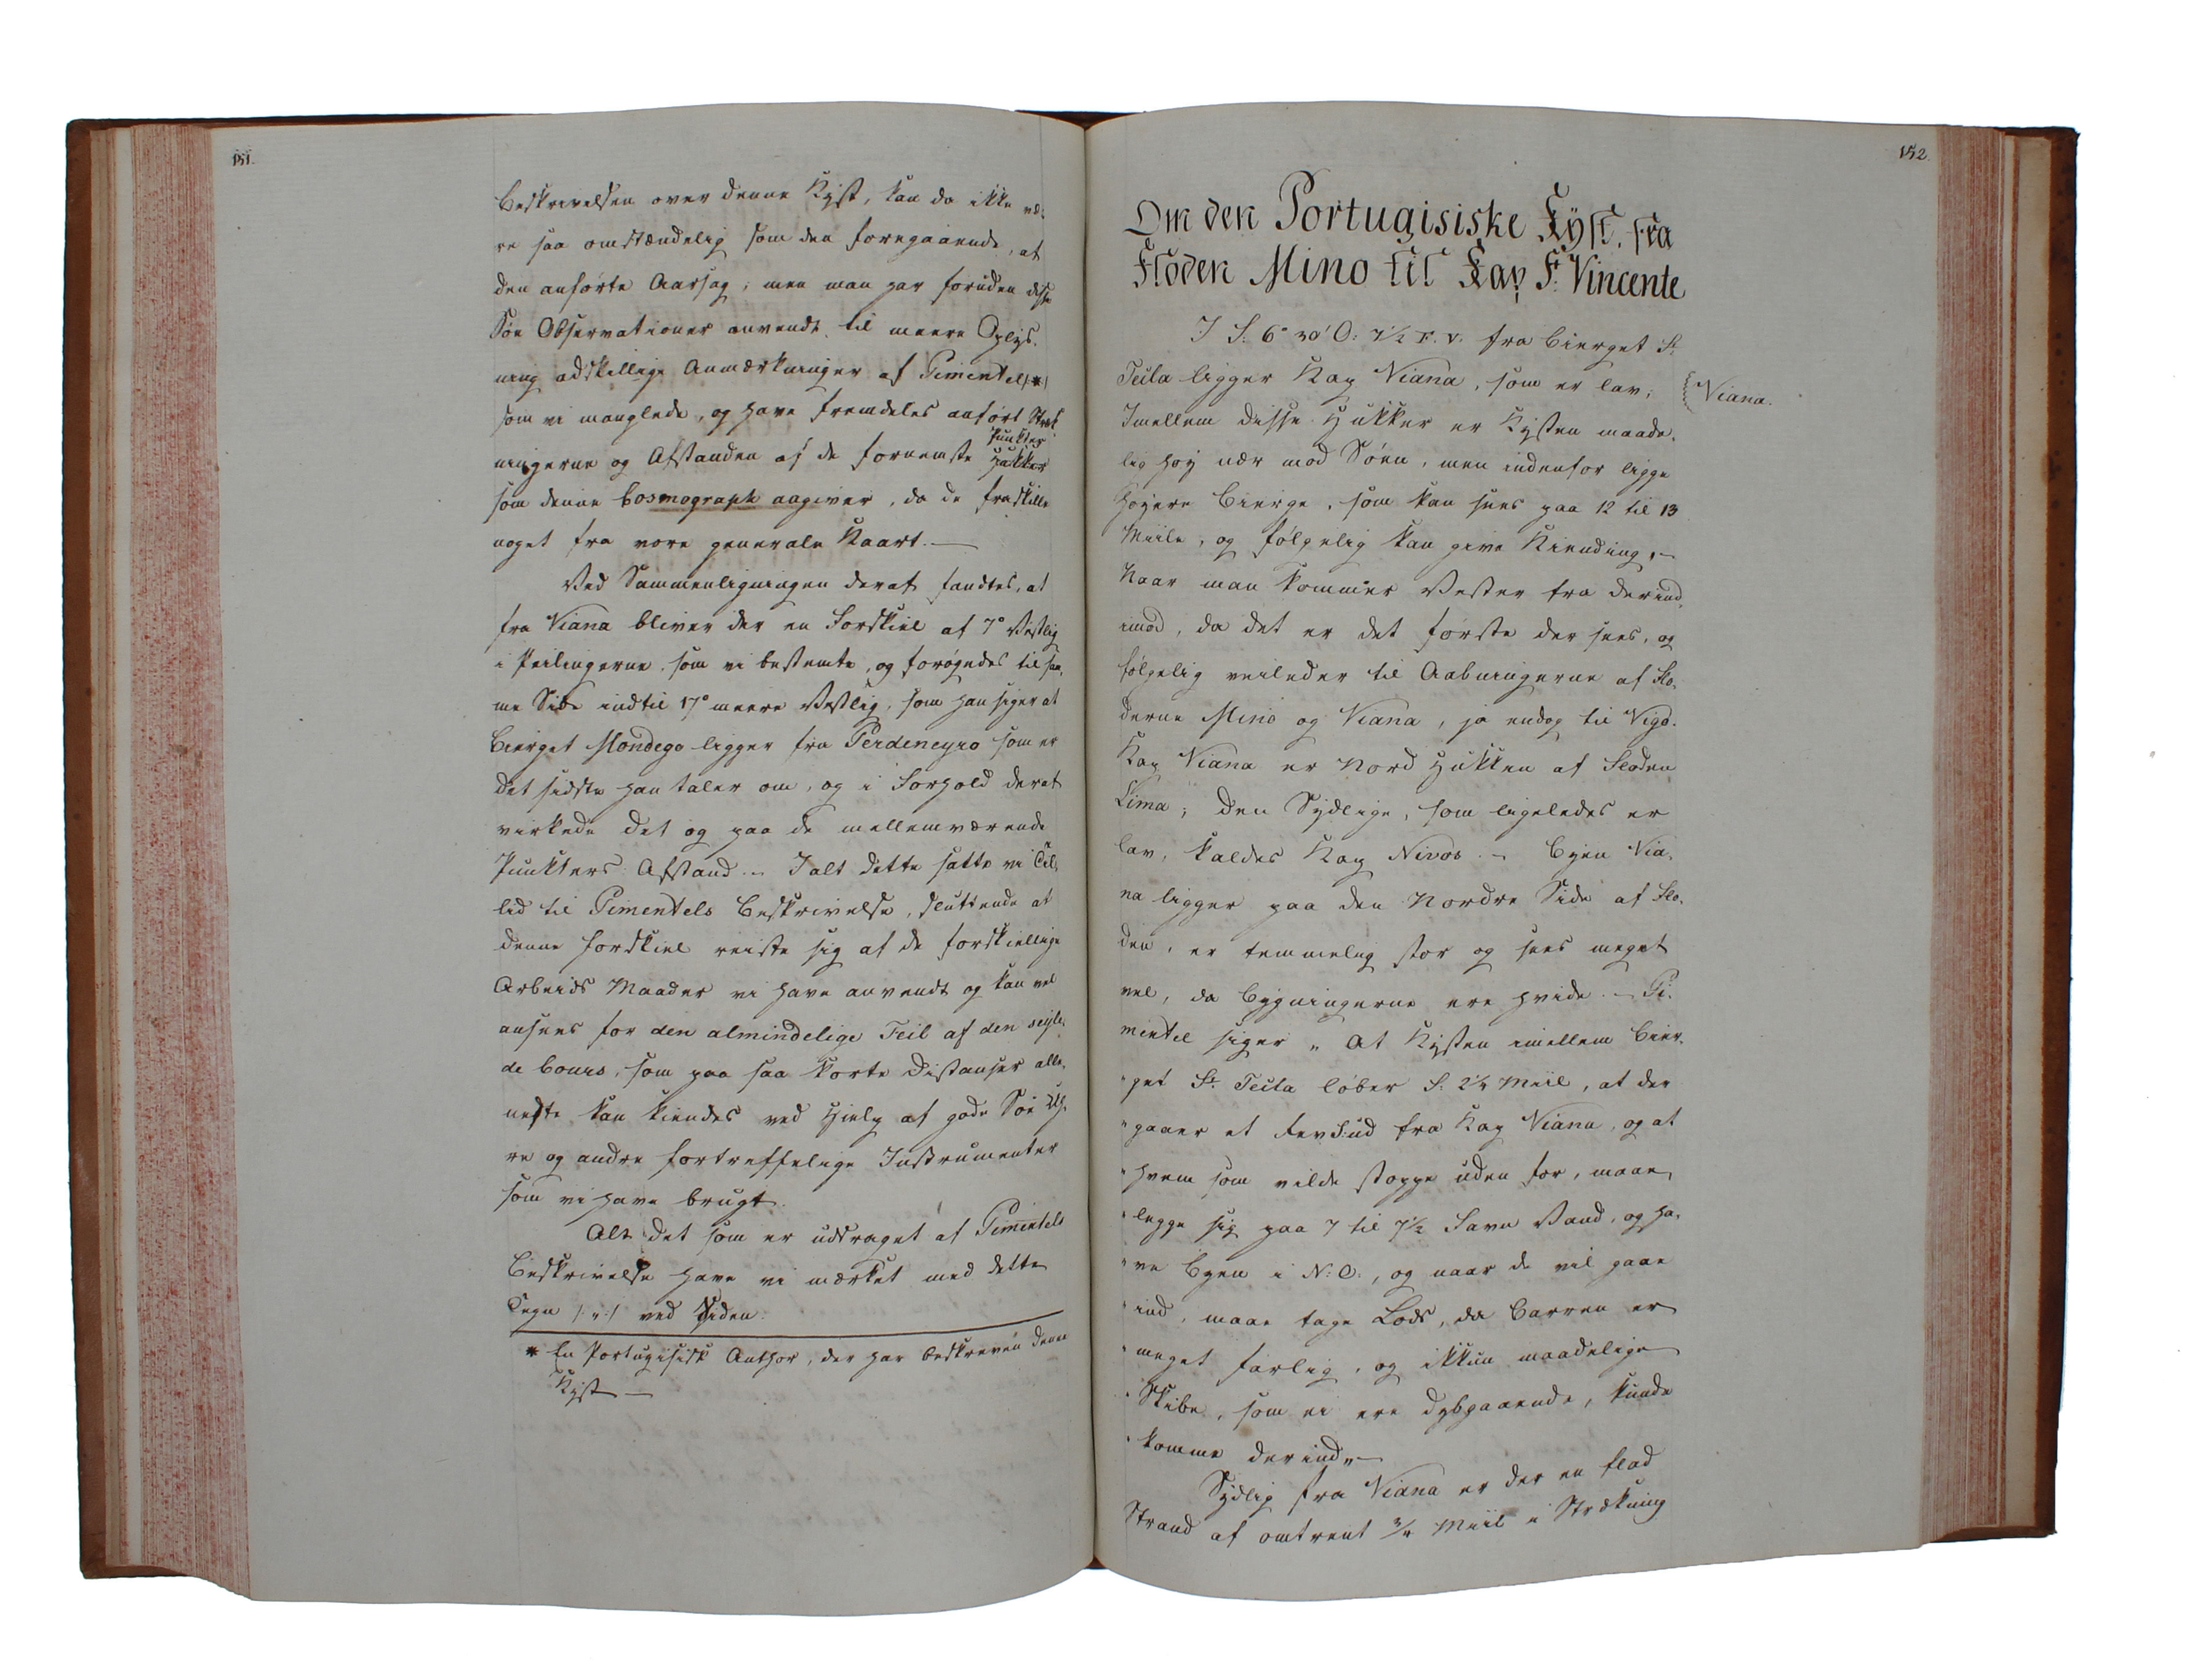 151.
Beskrivelsen over denne Kyst, kan da ikke væ-
re saa omstændelig som den foregaaende, af
den anførte Aarsag; men man har foruden disse
Søe Observationer anvendt til meere Oplys-
ning adskillige Anmærkninger af Pimentel (*)
som vi manglede, og have fremdeles anført Stræk
Punkter
ningerne og Afstanden af de fornemste Hukker
som denne Cosmograph angiver, da de fraskille
noget fra vore generale Kaart.—
Ved Sammenligningen deraf fandtes, at
fra Viana bliver der en Forskiel af 7° Vestlig
i Peilingerne, som vi bestemte, og forøgedes til sam-
me Side indtil 17° meere Vestlig, som han siger at
Bierget Mondego ligger fra Perdeneyro som er
det sidste han taler om, og i Forhold deraf
virkede det og paa de mellemværende
Punkters Afstand.— I alt dette satte vi Til-
lid til Pimentels Beskrivelse, sluttende at
denne Forskiel reiste sig af de forskiellige
Arbeids Maader vi have anvendt og kan vel
ansees for den almindelige Feil af den seyle-
de Cours, som paa saa korte Distanser alle-
neste kan kiendes ved Hielp af gode Søe Uh-
re og andre fortreffelige Instrumenter
som vi have brugt.
Alt det som er uddraget af Pimentels
Beskrivelse have vi mærket med dette
Tegn /: „ :/ ved Siden.
* En Portugisisk Author, der har beskreven denne
Kyst —
152.
Om den Portugisiske Kyst, fra
Floden Mino til Kap St. Vincente
I S. 6° 30' O: 7½ F. V. fra Bierget St.
Tecla ligger Kap Viana, som er lav;
Viana.
Imellem disse Hukker er Kysten maade-
lig høy nær mod Søen, men indenfor ligge
høyere Bierge, som kan sees paa 12 til 13
Miile, og følgelig kan give Kiending,—
naar man kommer Vester fra derind-
imod, da det er det første der sees, og
følgelig veileder til Aabningerne af Flo-
derne Mino og Viana, ja endog til Vigo.
Kap Viana er Nord Hukken af Floden
Lima; den Sydlige, som ligeledes er
lav, kaldes Kap Nivos.— Byen Via-
na ligger paa den Nordre Side af Flo-
den, er temmelig stor og sees meget
vel, da Bygningerne ere hvide.— Pi-
mentel siger „ At Kysten imellem Bier-
„get St. Tecla løber S. 2¼ Miil, at der
„gaaer et Rev S:ud fra Kap Viana, og at
„hvem som vilde stoppe uden for, maae
„legge sig paa 7 til 7½ Favn Vand, og ha-
„ve Byen i N:O., og naar de vil gaae
„ind, maae tage Lods, da Barren er
„meget farlig, og ikkun maadelige
„Skibe, som ei ere dybgaaende, kunde
„komme derind„—
Sydlig fra Viana er der en flad
Strand af omtrent ¾ Miil i Strækning